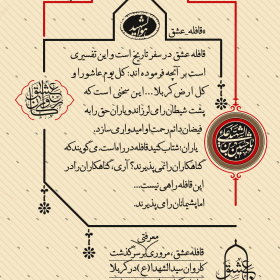 هوالشهید
«قافله‌ی عشق»
قافله عشق در سفر تاریخ است و این تفسیری
است بر آنچه فرموده‌اند: کل یوم عاشورا و
کل ارض کربلا... این سخنی است که
پشت شیطان را می‌لرزاند و یاران حق را به
فیضان دائم رحمت او امیدوار می‌سازد.
یاران! شتاب کنید، قافله در راه است. می‌گویند که
گناهکاران را نمی‌پذیرند؟ آری، گناهکاران را در
این قافله راهی نیست...
اما پشیمانان را می‌پذیرند.
معرفی
قافله عشق، مروری بر سرگذشت
کاروان سیدالشهدا (ع) در کربلا